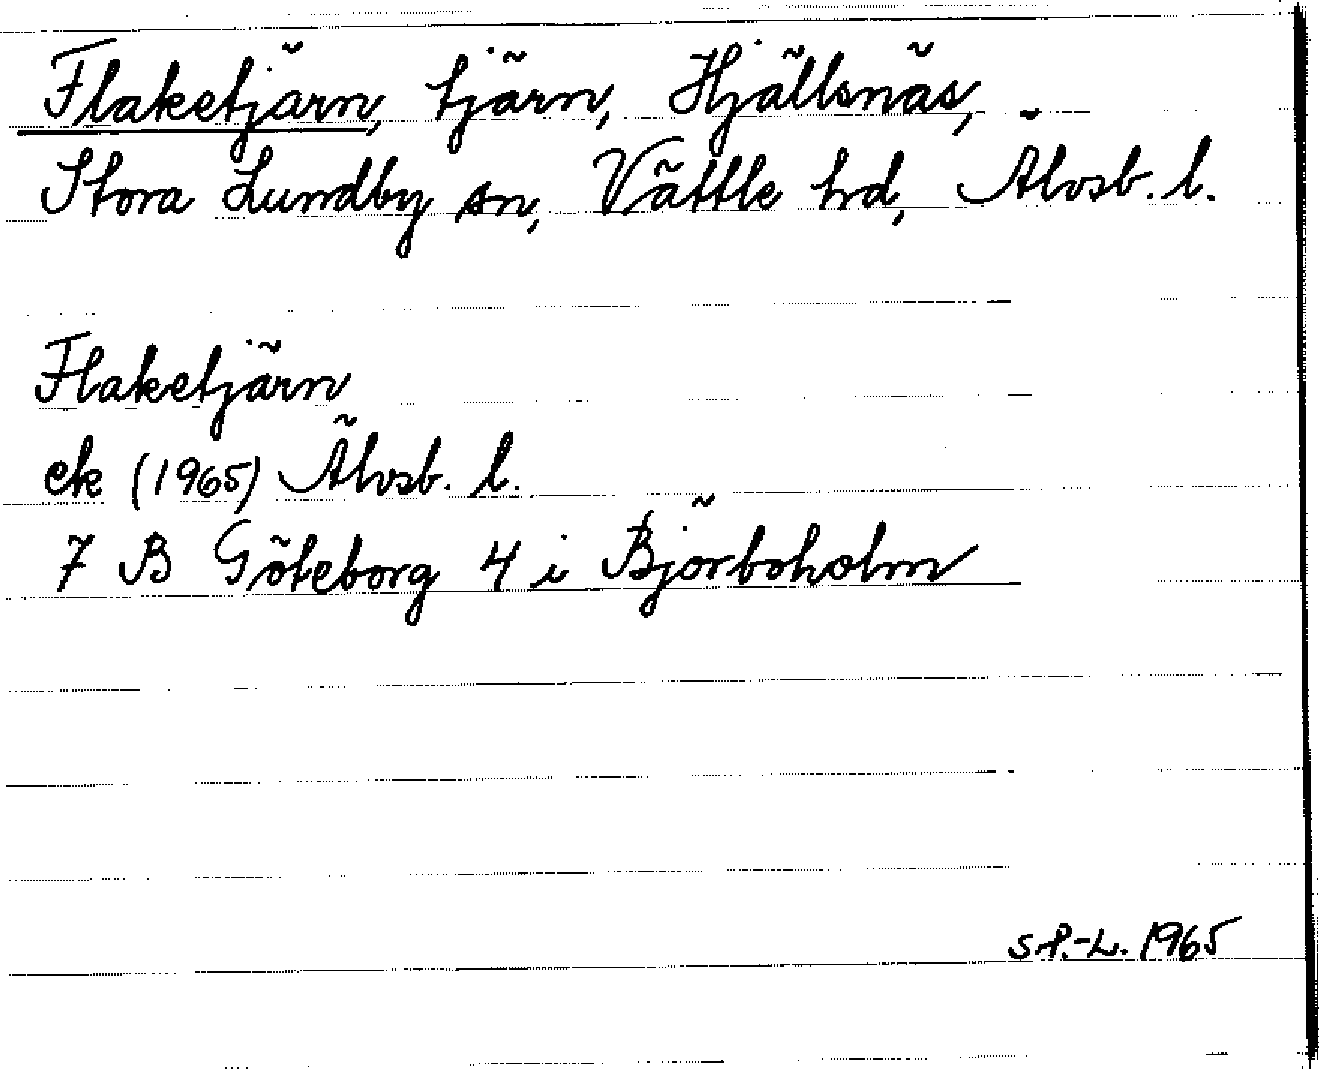 Flaketjärn, tjärn, Hjällsnäs,
Stora Lundby sn, Vättle hd, Älvsb. l.
Flaketjärn
ek (1965) Älvsb. l.
7 B Göteborg 4 i Björboholm
S P.-L. 1965